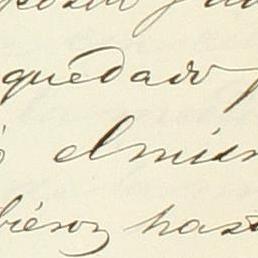 quedado
elmism
biéron hast